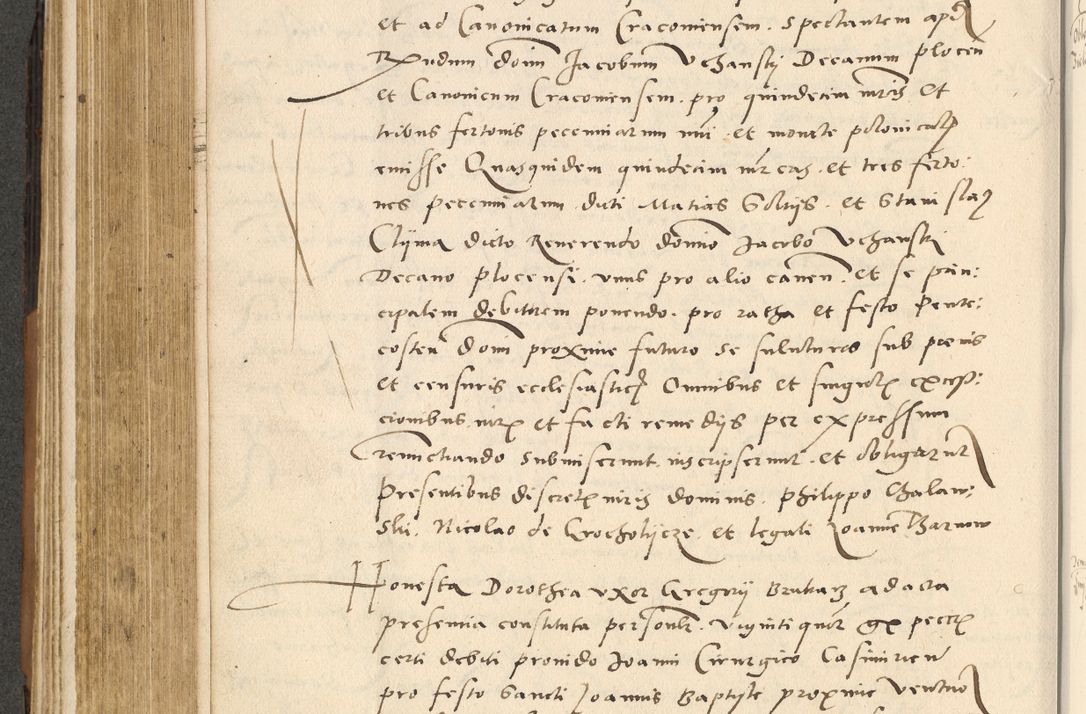 et ad Canonicatum Cracoviensem spectantem apd
Rndum domi Jacobum Uchansky Decanum plocen
et Canonicum Cracoviensem pro quindecim mrcis et
tribus fertonis pecuniarum nui et monete polonicalis
emisse Quasquidem quindecim mrcas et tres ferto:
nes pecuniarum ducti Matias Goltys et Stanislaus
Clyma dicto Reverendo domino Jacobo Uchansky
Decano plocensi unus pro alio caven et se prin:
cipalem debitorem ponendo pro ratha et festo Pente:
costen domi proxime futuro se soluturos sub penis
et censuris ecclesiasticis Omnibus et singulis excep:
cionibus iuris et facti remedys per expressum
renunctiando submiserunt inscripserunt et obligarunt
presentibus discretis viris dominis Philippo Chalaw:
ski Nicolao de Crocholycze et legali Joanne Tharnow
Honesta Dorothea uxor Gregory Brukarz ad acta
presencia constituta personlr viginti quinque gr pecuis
certi debiti provido Joanni Cirurgico Casimirien
pro festo Sancti Joannis Baptiste proxime ventuo